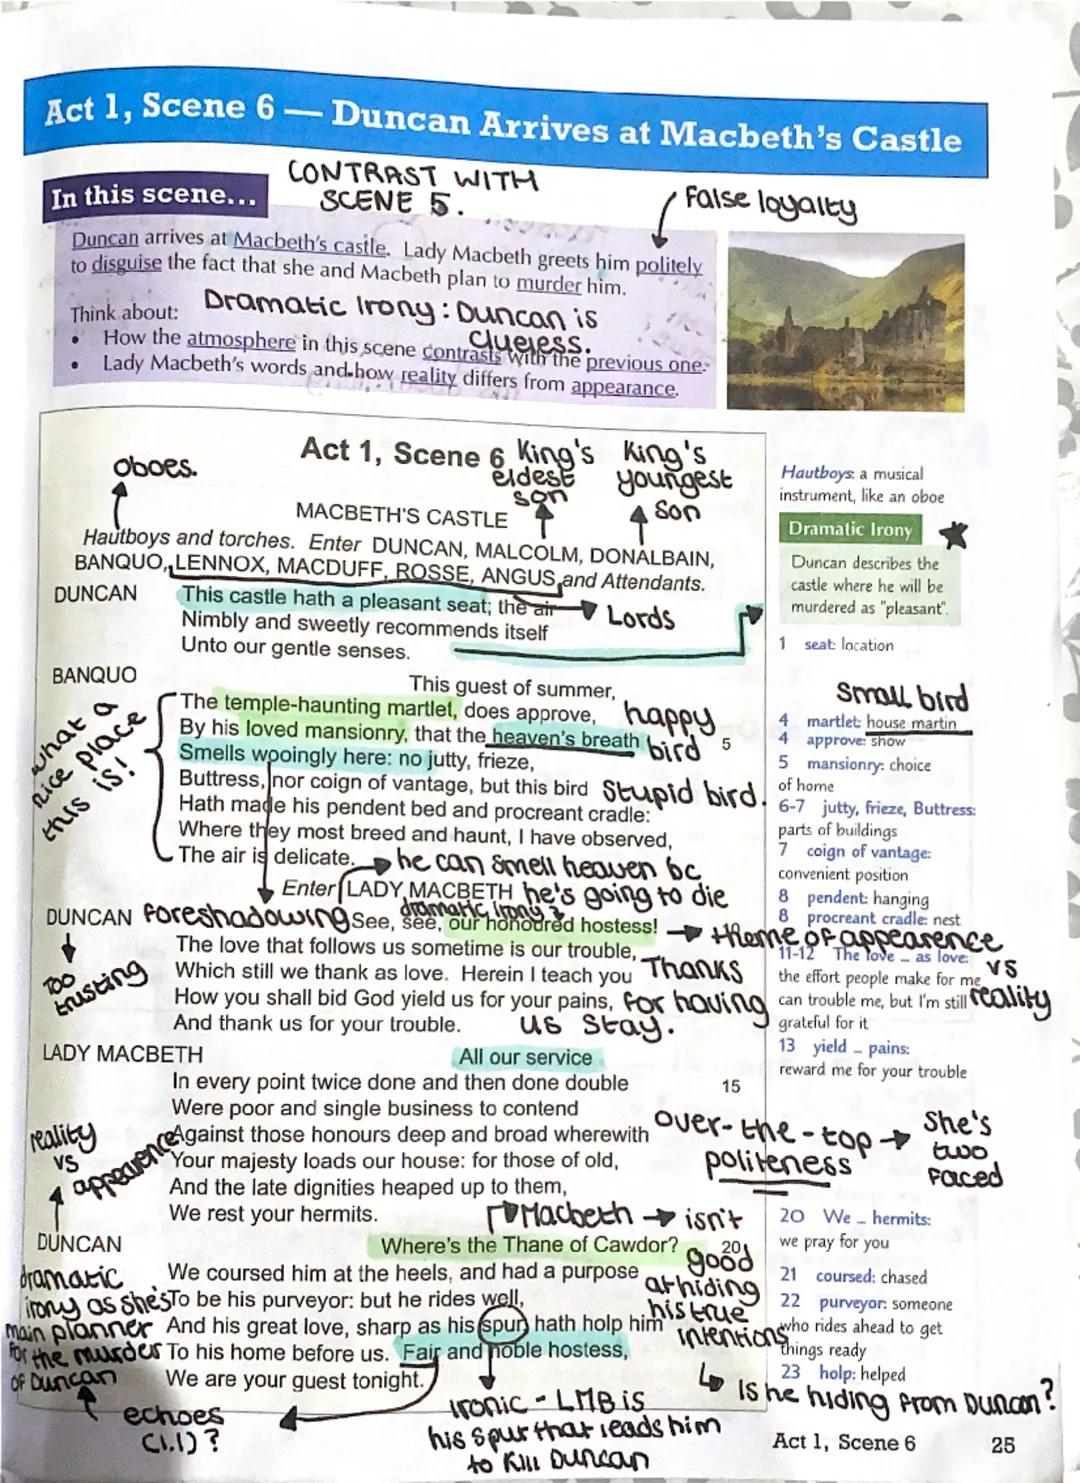 Act 1, Scene 6 — Duncan Arrives at Macbeth's Castle
CONTRAST WITH
SCENE 5.
False loyalty
In this scene...
Duncan arrives at Macbeth's castle. Lady Macbeth greets him politely
to disguise the fact that she and Macbeth plan to murder him.
Dramatic Irony: Duncan is
clueless.
Think about:
• How the atmosphere in this scene contrasts with the previous one.
• Lady Macbeth's words and how reality differs from appearance.
Act 1, Scene 6
King's
eldest
son
King's
youngest
son
oboes.
MACBETH'S CASTLE
Hautboys and torches. Enter DUNCAN, MALCOLM, DONALBAIN,
BANQUO, LENNOX, MACDUFF, ROSSE, ANGUS and Attendants.
Lords
DUNCAN This castle hath a pleasant seat; the air
Nimbly and sweetly recommends itself
Unto our gentle senses.
BANQUO This guest of summer,
The temple-haunting martlet, does approve,
By his loved mansionry, that the heaven's breath 5
Smells wooingly here: no jutty, frieze,
Buttress, nor coign of vantage, but this bird
Hath made his pendent bed and procreant cradle:
Where they most breed and haunt, I have observed,
The air is delicate.
what a
nice place
this is!
happy
bird
Stupid bird.
he can smell heaven bc
he's going to die
dramatic irony?
Enter LADY MACBETH
foreshadowing
DUNCAN See, see, our honoured hostess!
The love that follows us sometime is our trouble,
Which still we thank as love. Herein I teach you
How you shall bid God yield us for your pains,
And thank us for your trouble.
Too
trusting
theme of appearence
vs
reality
Thanks
for having
us stay.
LADY MACBETH All our service
In every point twice done and then done double 15
Were poor and single business to contend
Against those honours deep and broad wherewith
Your majesty loads our house: for those of old,
And the late dignities heaped up to them,
We rest your hermits.
reality
vs
appearence
over-the-top
politeness
She's
two
faced
DUNCAN Where's the Thane of Cawdor? 20
We coursed him at the heels, and had a purpose
To be his purveyor: but he rides well,
And his great love, sharp as his spur, hath holp him
To his home before us. Fair and noble hostess,
We are your guest tonight.
Macbeth
isn't
good
at hiding
his true
intentions
Is he hiding from Duncan?
dramatic
irony as she's
main planner
for the murder
of Duncan
echoes
(1.1)?
ironic - LMB is
his spur that leads him
to kill Duncan
Hautboys: a musical
instrument, like an oboe
Dramatic Irony
Duncan describes the
castle where he will be
murdered as "pleasant".
1 seat: location
Small bird
4 martlet: house martin
4 approve: show
5 mansionry: choice
of home
6-7 jutty, frieze, Buttress:
parts of buildings
7 coign of vantage:
convenient position
8 pendent: hanging
8 procreant cradle: nest
11-12 The love ... as love:
the effort people make for me
can trouble me, but I'm still
grateful for it
13 yield ... pains:
reward me for your trouble
20 We ... hermits:
we pray for you
21 coursed: chased
22 purveyor: someone
who rides ahead to get
things ready
23 holp: helped
Act 1, Scene 6 25